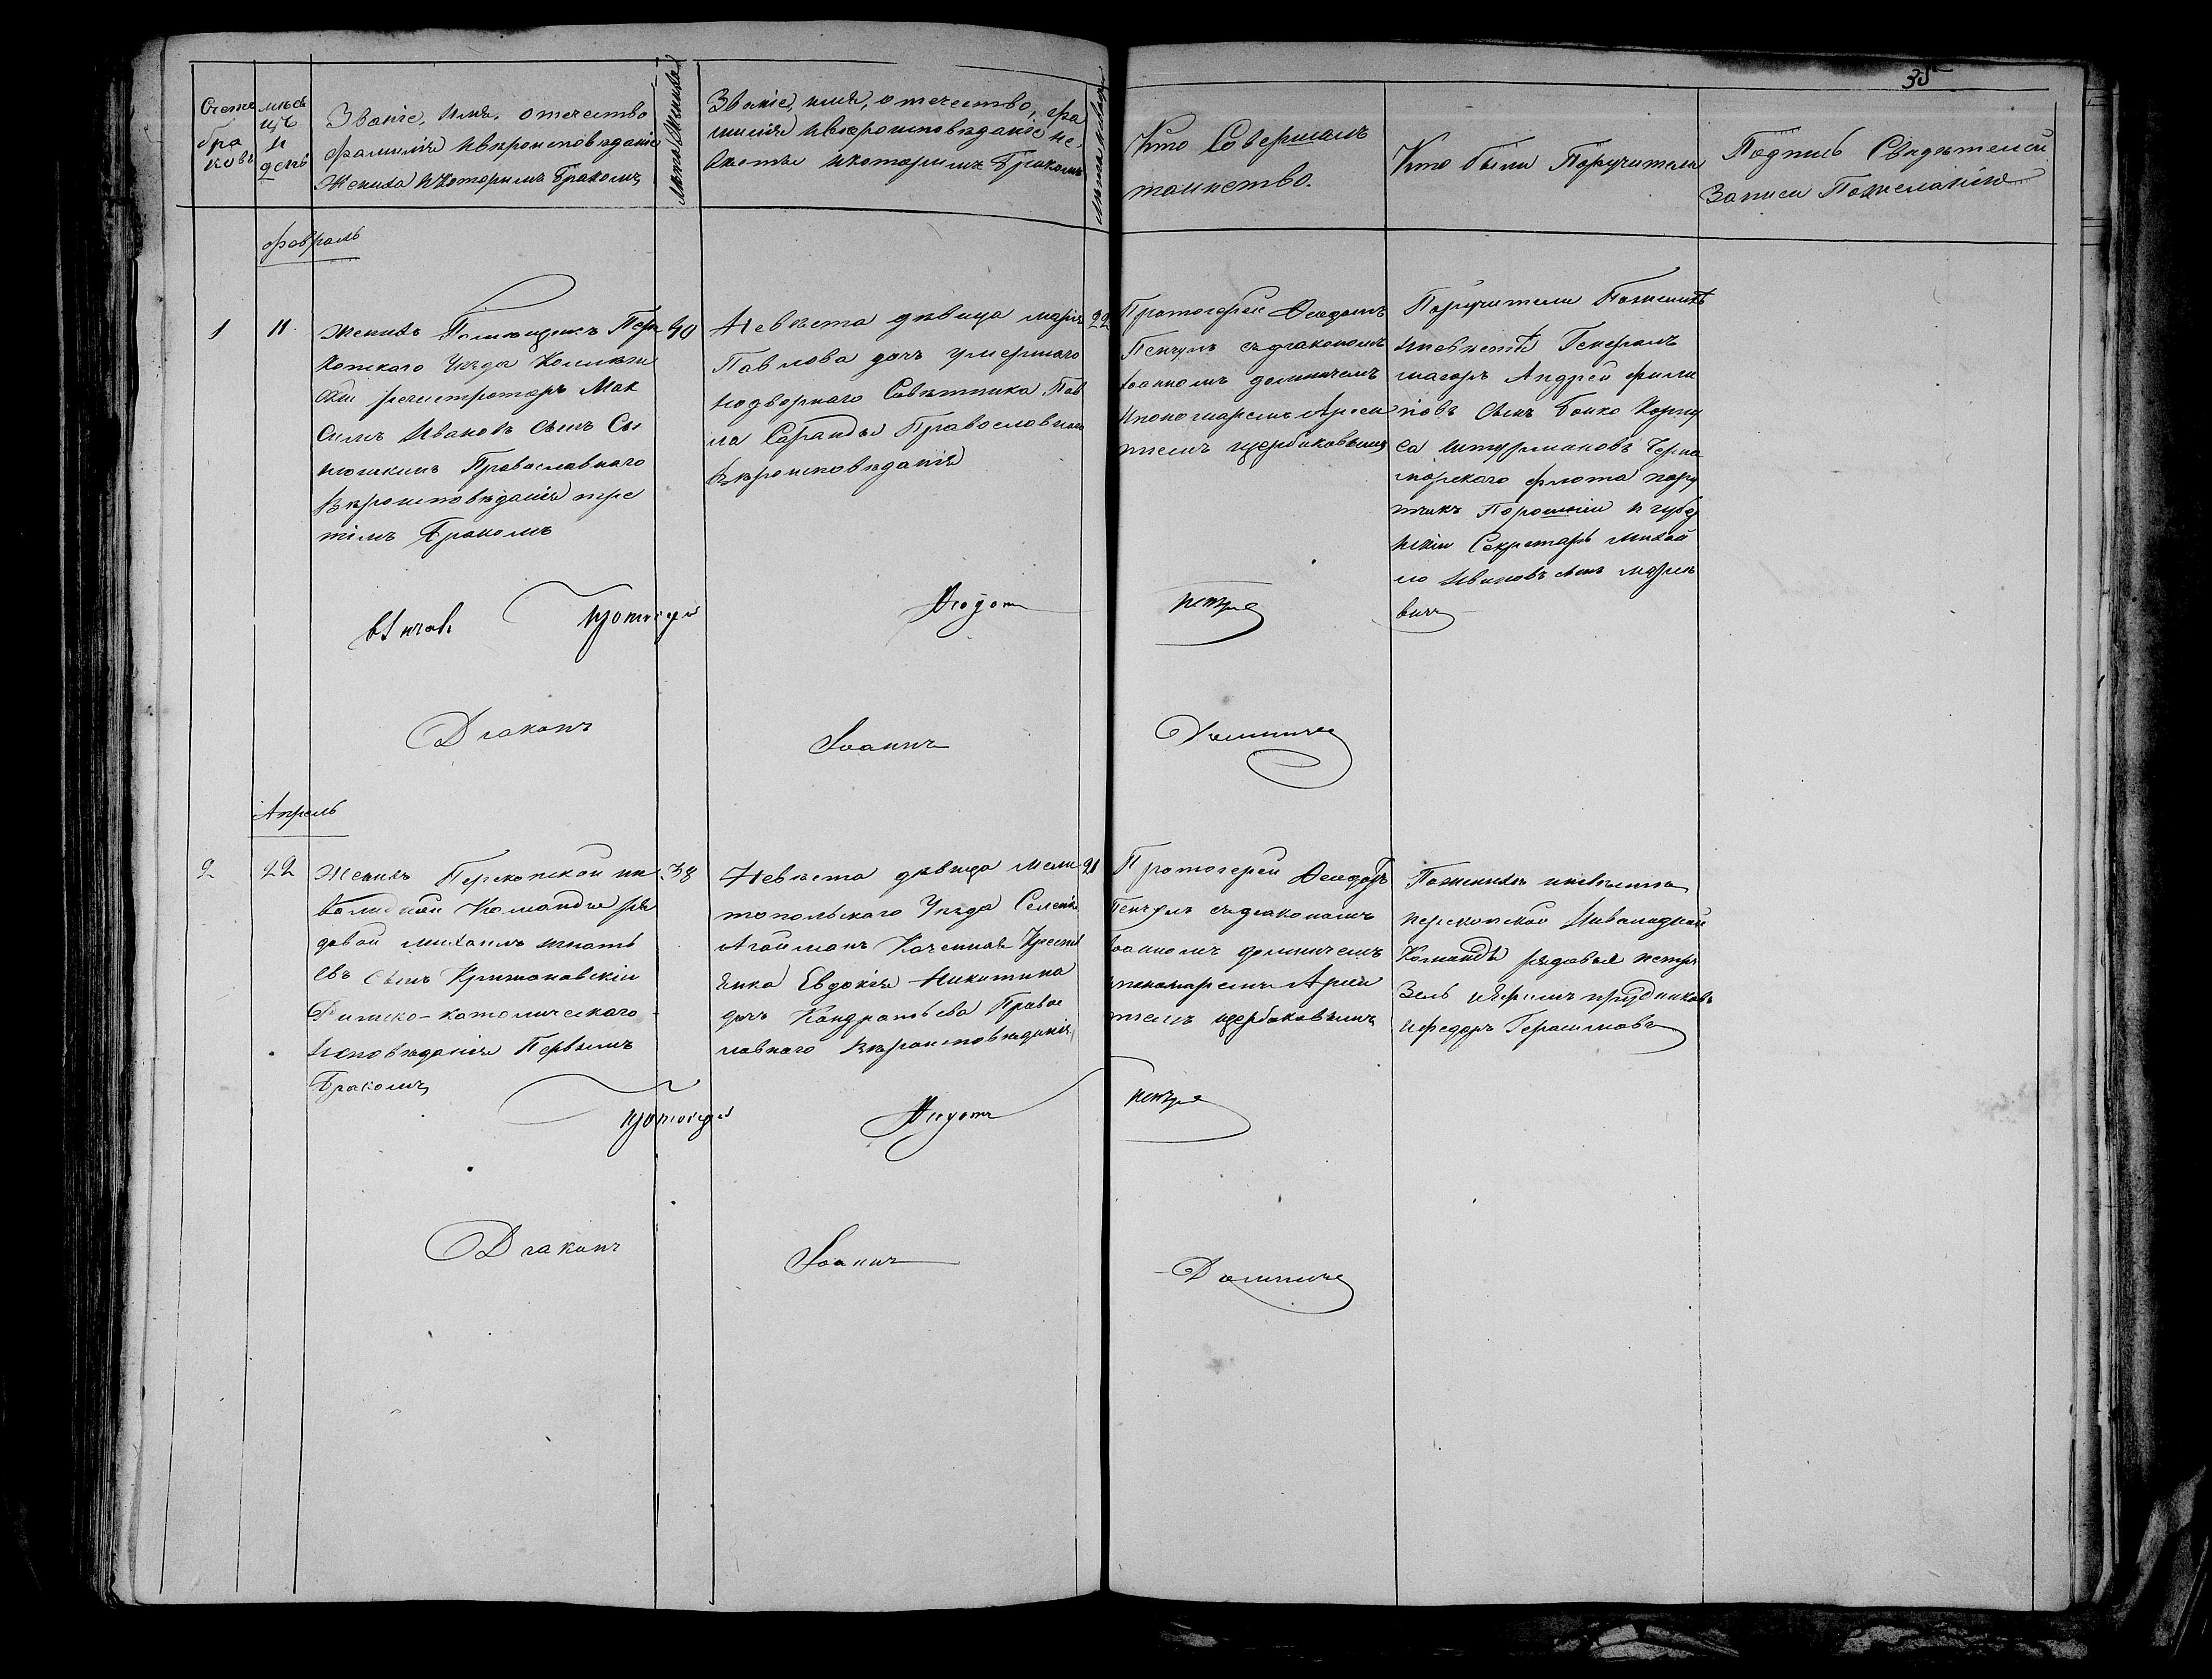 35
Счетъ
бра
ковъ
мѣся
цъ
и
день
Званіе, имя, отечество
фамилія ивѣроисповѣданіе
Жениха икоторымъ бракомъ
Лѣта Жениха
Званіе, имя, отечество, фа
милія ивѣроисповѣданіе не,
вѣсты икоторымъ бракомъ
Лѣта невѣсты
Кто Совершалъ
таинство.
Кто были Поручители
Подпись Свидѣтелей
Записи Пожеланію
февраль
1
11.
Женихъ Помѣщикъ Пере
копскаго Уѣзда Коллежи
скій регистраторъ Мак
симъ Ивановъ сынъ Сы
нюшкинъ Православнаго
Вѣроисповѣданія тре
тімъ бракомъ
40
Невѣста дѣвица марія
Павлова дочь умершаго
надворнаго Совѣтника Пав
ла Саранды Православнаго
Вѣроисповѣданія
22
Протоіерей Ѳеодотъ
Пенчулъ съдіакономъ
Іоанномъ доминичемъ
Ипономаремъ Арсен
тіемъ щербаковымъ
Поручители Поженихѣ
иневѣстѣ Генералъ
маіоръ Андрей фили
повъ сынъ Бойко Корпу
са штурмановъ Черно
морскаго флота пору
тчикъ и губер
нскій Секретарь михай
ло Ивановъ сынъ
вичъ
протоіерей
Ѳеодотъ
пенчулъ
Діаконъ
Іоаннъ
Доминичъ
Апрель
2
22
Женихъ Перекопской ин
валидной Команды ря
довой михаилъ игнать
евъ сынъ Крижановскій
Римско-католическаго
Исповѣданія Первымъ
бракомъ
38
Невѣста дѣвица Мели
топольскаго Уѣзда Селенія
Агайманъ Казенная Кресть
янка Евдокія Никитина
дочь Кондратьева Правос
лавнаго Вѣроисповѣданія
21
Протоіерей Ѳеодотъ
Пенчулъ съдіакономъ
Іоанномъ доминичемъ
ипономаремъ Арсен
тіемъ щербаковымъ
Поженихѣ иневѣстѣ
перекопской Инвалидной
Команды рядовые петръ
Зель иЕфимъ прудниковъ
иФедоръ Герасимовъ
протоіерей
Ѳеодотъ
пенчулъ
Діаконъ
Іоаннъ
Доминичъ